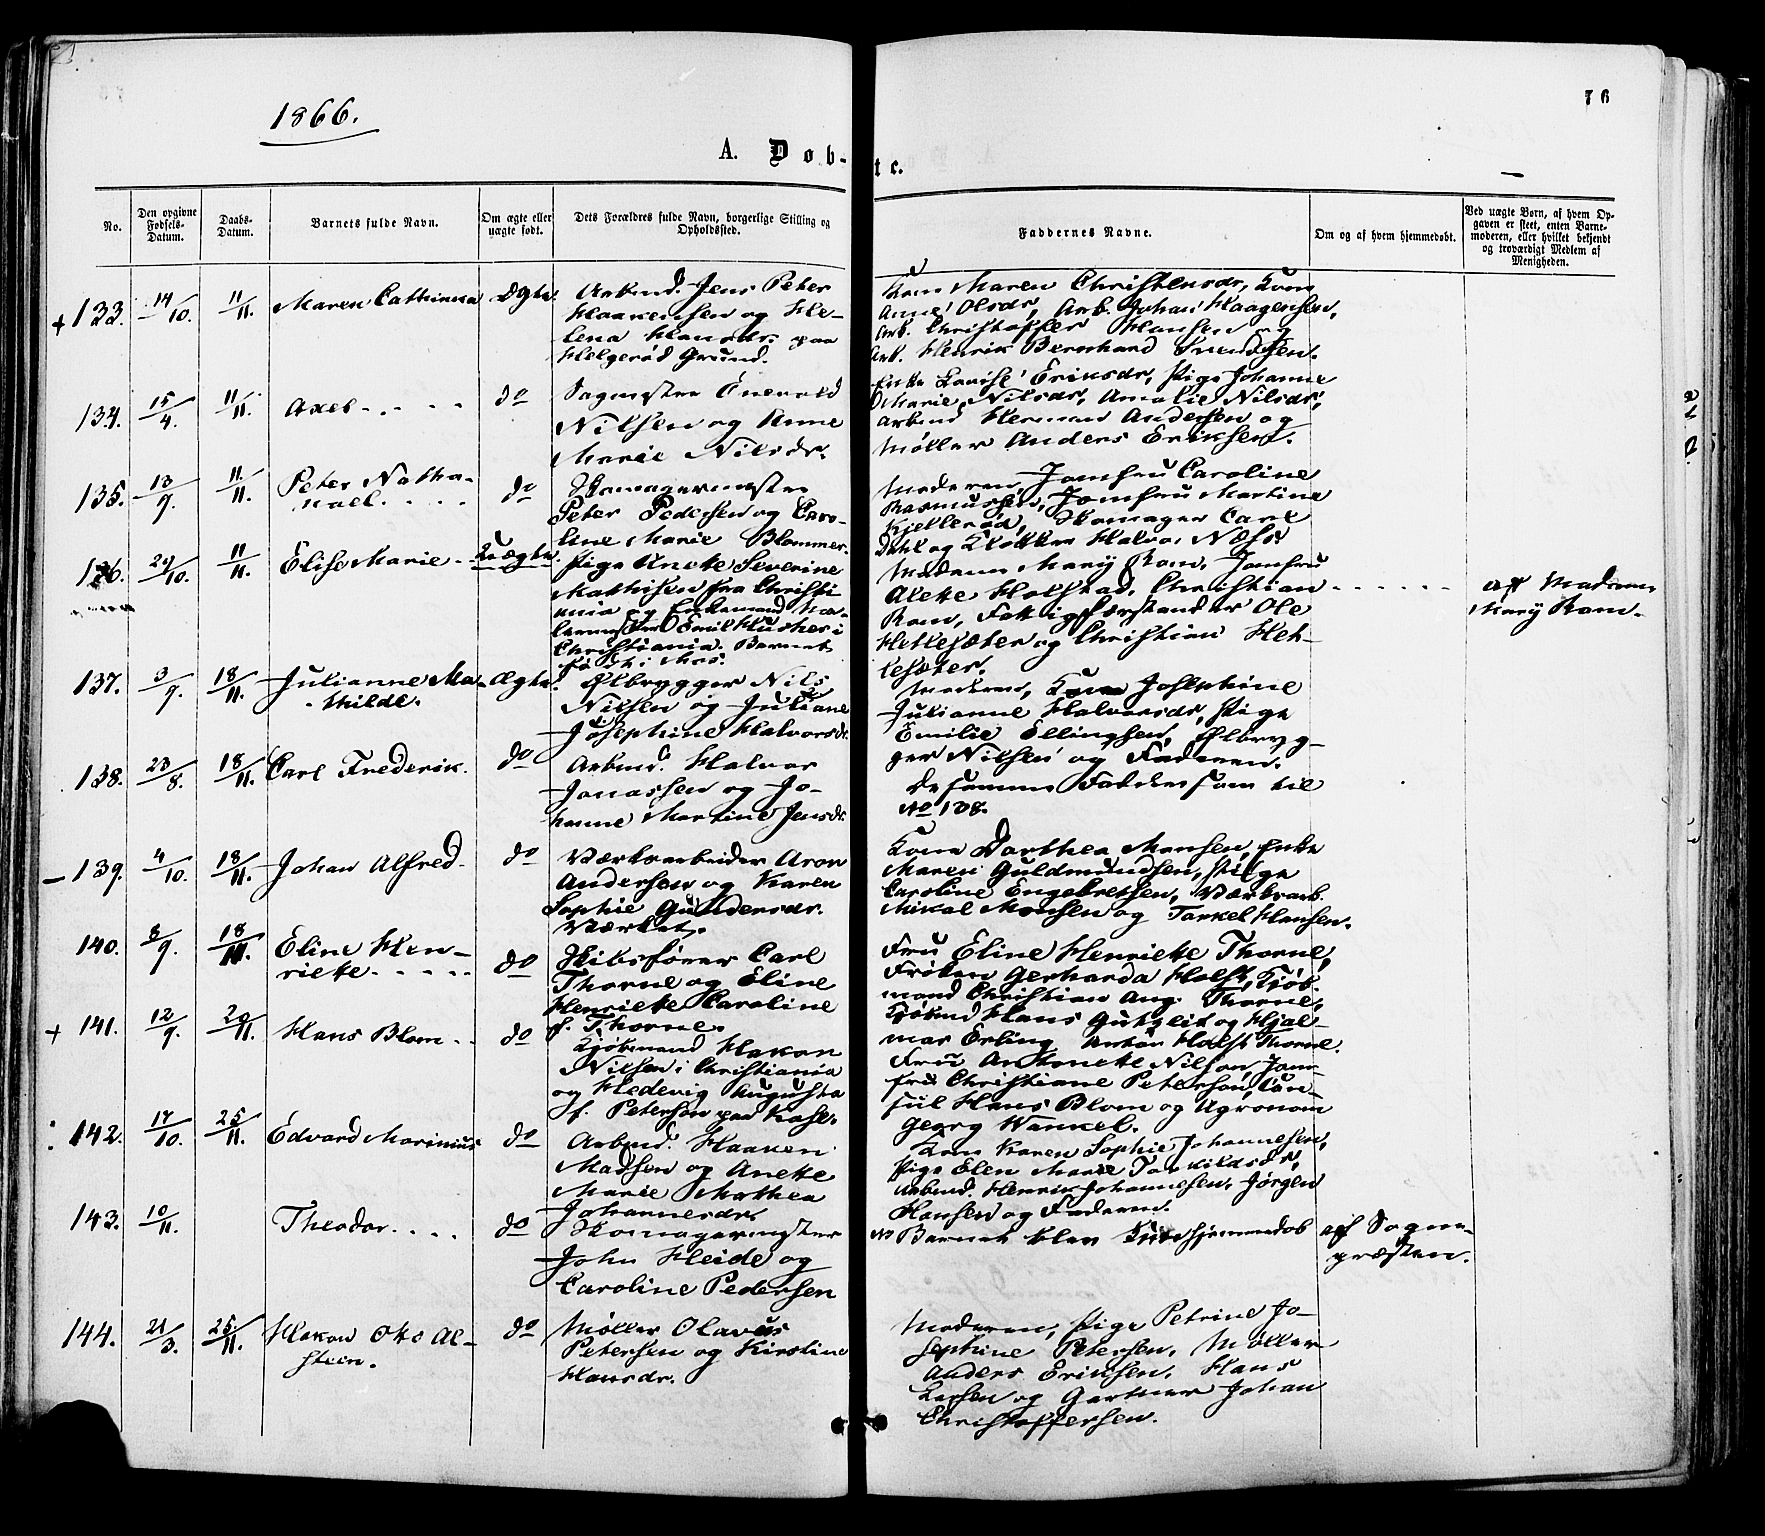 1866.
76
A. Døb-
te.
No.
Den opgivne
Fødsels-
Datum.
Daabs-
Datum.
Barnets fulde Navn.
Om ægte eller
uægte født.
Dets Forældres fulde Navn, borgerlige Stilling og
Opholdssted.
Faddernes Navne.
Om og af hvem hjemmedøbt.
Ved uægte Børn, af hvem Op-
gaven er skeet, enten Barne-
moderen, eller hvilket bekjendt
og troværdigt Medlem af
Menigheden.
+ 133. 14/10. 11/11. Maren Cathrina Ægte.
Arbmd. Jens Peter
Haakensen og He-
lena Hansdr. paa
Helgerød Grund.
Kone Maren Christensdr, Kone
Anne Olsdr, Arb. Johan Haagensen,
Arb. Christoffer Hansen og
Arb. Henrik Bernhard Svendsen.
134. 15/4. 11/11. Axel do
Sagmester Enevold
Nilsen og Anne
Marie Nilsdr.
Enke Lovise Eriksdr, Pige Johanne
Marie Nilsdr, Amalie Nilsdr,
Arbmd Herman Andersen og
Møller Anders Eriksen.
135. 13/9. 11/11. Peter Natha-
nael. do
Skomagermester
Peter Pedersen og Caro-
line Marie Blommer.
Moderen, Jomfru Caroline
Rasmussen, Jomfru Martine
Kjellerød, Skomager Carl
Dahl og Klokker Halvor Næss.
136. 20/10. 11/11. Elise Marie Uægte.
Pige Anette Severine
Mathisen fra Christi-
ania og Ma-
lersvend Emil Husher i
Christiania. Barnet
født i Mos.
Madam Mary Ram, Jomfru
Alette Holstad, Christian
Ram, Fattigforstander Ole
Hetlesæter og Christian Het-
lesæter.
af Madam
Mary Ram.
137. 3/9. 18/11. Julianne Ma-
thilde. Ægte.
Ølbrygger Nils
Nilsen og Juliane
Josephine Halvorsdr.
Moderen, Kone Josephine
Julianne Halvorsdr, Pige
Emilie Ellingsen, Ølbryg-
ger Nilsen og Faderen.
138. 23/8. 18/11. Carl Frederik. do
Arbmd. Halvor
Jonassen og Jo-
hanne Martine Jensdr.
De samme Faddere som til
No 138.
- 139. 4/10. 18/11. Johan Alfred. do
Værksarbeider Aron
Andersen og Karen
Sophie Gundersdr.
Værket.
Kone Dorthea Monsen, Enke
Maren Guldmundsen, Pige
Caroline Engebretsen, Værksarb.
Mikal Monsen og Tarkel Hansen.
140. 8/9. 18/11. Eline Hen-
riette. do
Skibsfører Carl
Thorne og Eline
Henriette Caroline
f. Thorne.
Fru Eline Henriette Thorne,
Frøken Gerharda Holst, Kjøb-
mand Christian Aug. Thorne,
Kjøbmd Hans Gutzlit og Hjal-
mar Erling Anton Holst Thorne.
+ 141. 12/9. 20/11. Hans Blom do
Kjøbmand Hakon
Nilsen i Christiania
og Hedevig Augusta
f. Peterson paa Kase.
Fru Antonette Nilson, Jom-
fru Christiane Peterson, Con-
sul Hans Blom og Agronom
Georg Wankel.
142. 17/10. 25/11. Edvard Marinius do
Arbmd. Haaken
Madsen og Anette
Marie Mathea
Johannesdr.
Kone Karen Sophie Johannesen,
Pige Elen Marie Tarkildsdr,
Arbmd. Henrik Johannesen, Jørgen
Hansen og Faderen.
143. 10/11. Theodor. do
Skomagermester
John Heide og
Caroline Pedersen
Barnet blev kun hjemmedøb af Sogne-
præsten.
144. 21/3. 25/11. Hakon Otto Al-
stein. do
Møller Olavus
Petersen og Kirstine
Hansdr.
Moderen, Pige Petrine Jo-
sephine Petersen, Møller
Anders Eriksen, Hans
Larsen og Gartner Johan
Christoffersen.